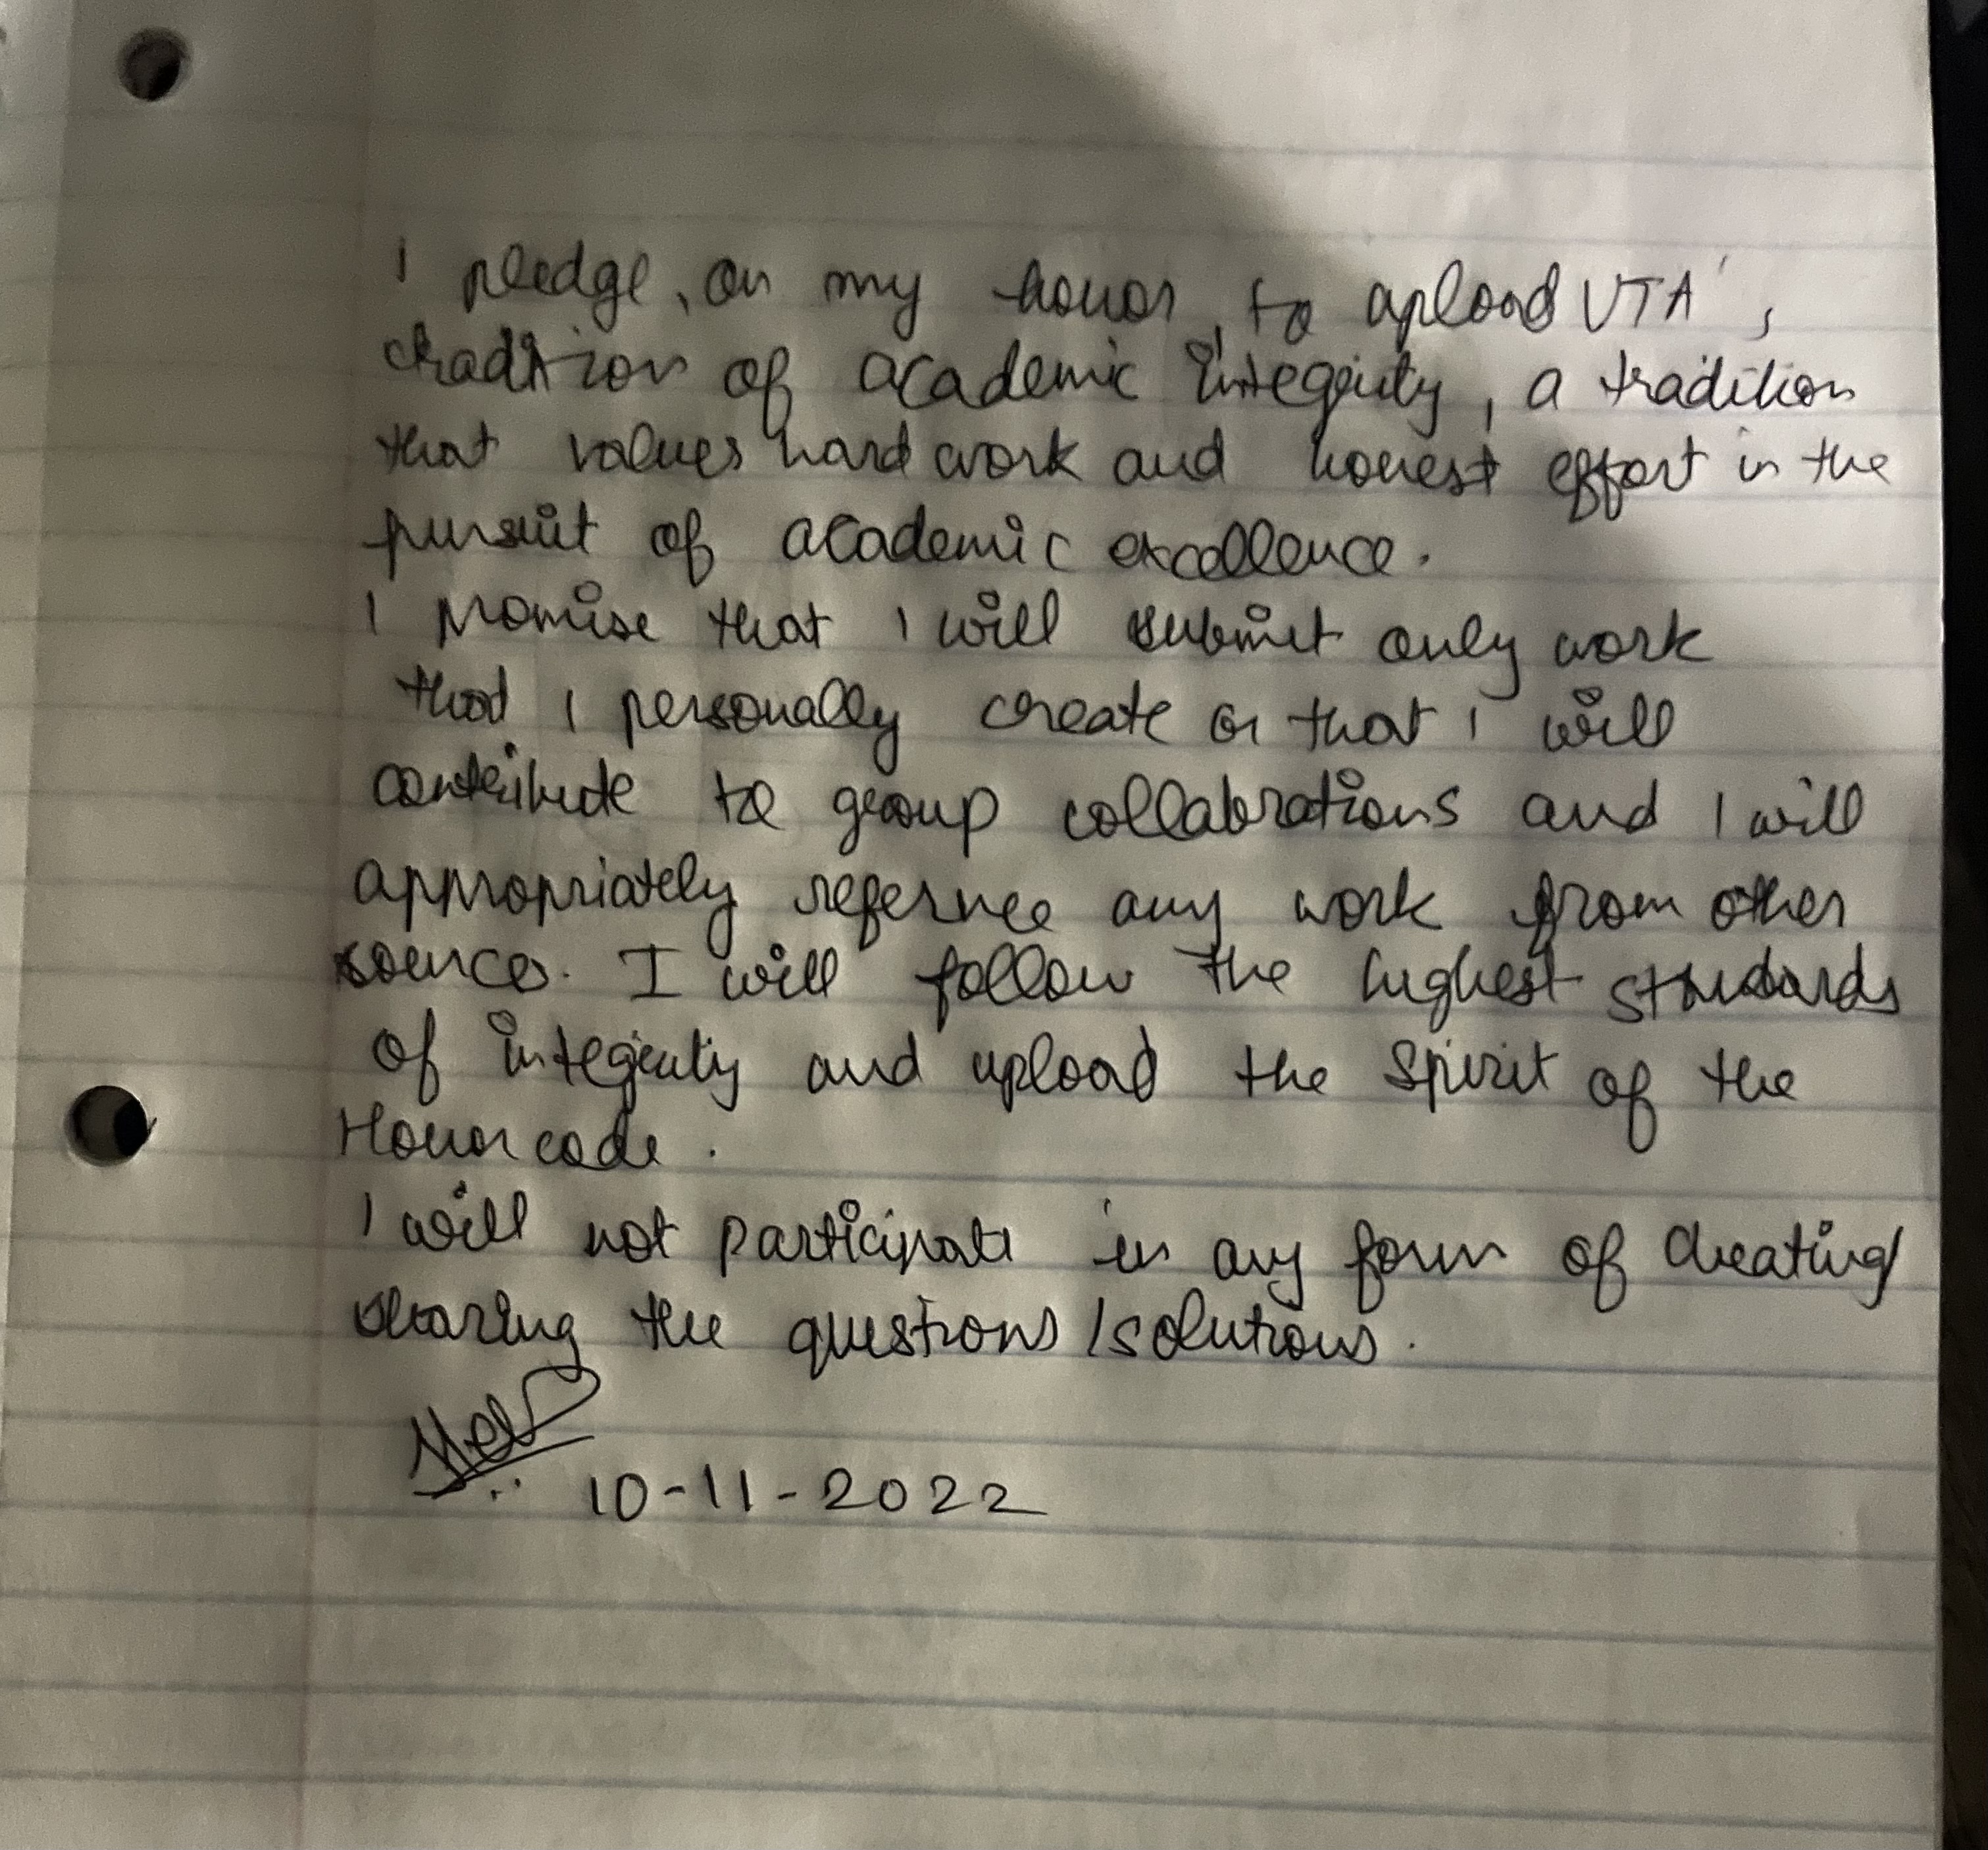 I pledge, on my honor, to upload UTA's
tradition of academic integrity, a tradition
that values hard work and honest effort in the
pursuit of academic excellence.
I promise that I will submit only work
that I personally create or that I will
contribute to group collabrations and I will
appropriately refernce any work from other
source. I will follow the highest standards
of integrity and upload the Spirit of the
Honor code.
I will not participate in any form of cheating/
sharing the questions/solutions.
10-11-2022